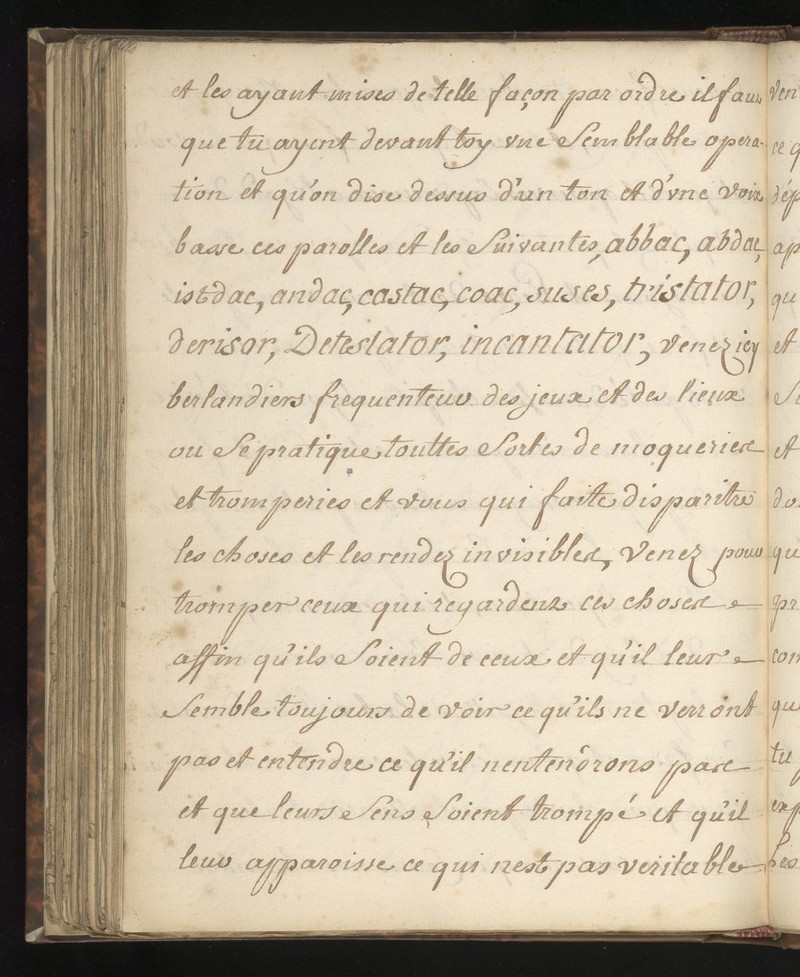 et les ayant mises de telle façon par ordre il faut
que tu ayent devant toy vne Semblable opera-
tion et qu'on dise dessus d'un ton et d'vne voix
basse ces parolles et les Suivantes, abbac, abdac,
istdac, andac, castac, coac, suses, tristator,
derisor, Detestator, incantator, venez icy
berlandiers frequenteurs des jeux et des lieux
ou Se pratique touttes Sortes de moqueries
et tromperies et vous qui faite disparitre
les choses et les rendez invisibles, Venez pour
tromper ceux qui regardent ces choses
affin qu'ils Soient de ceux et qu'il leur
Semble toujours de voir ce qu'ils ne verront
pas et entendre ce qu'il nentendrons pas
et que leurs Sens Soient trompé et qu'il
leur apparoisse ce qui nest pas veritable